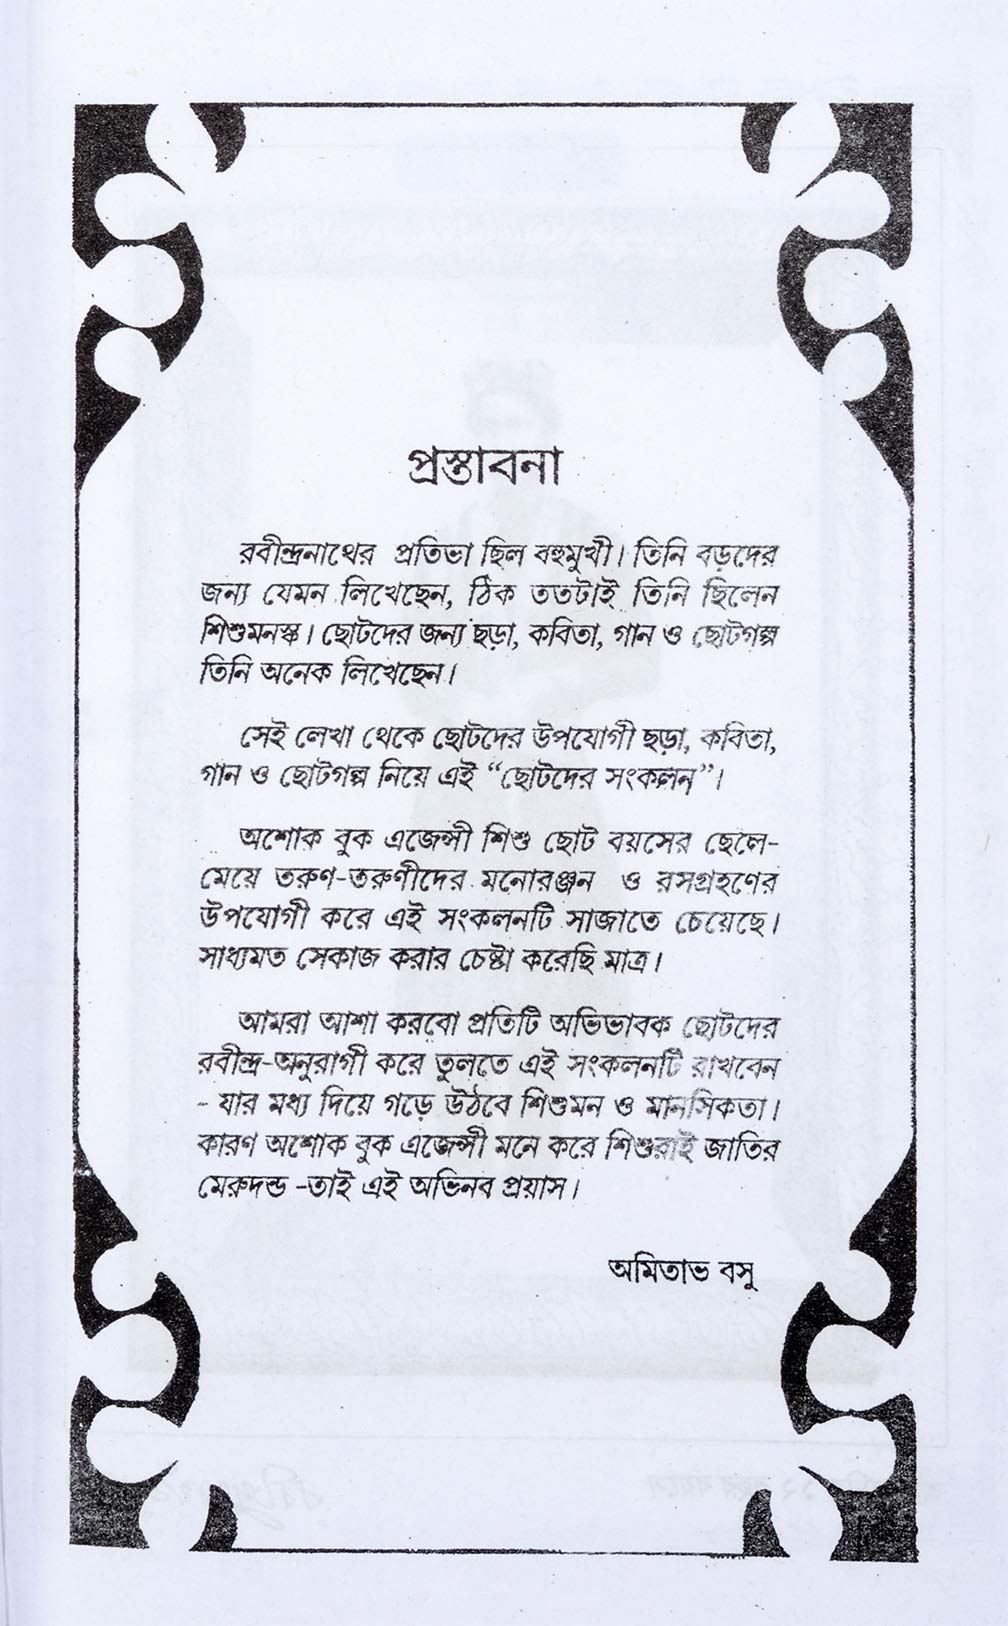 প্রস্তাবনা
রবীন্দ্রনাথের প্রতিভা ছিল বহুমুখী। তিনি বড়দের
জন্য যেমন লিখেছেন, ঠিক ততটাই তিনি ছিলেন
শিশুমনস্ক। ছোটদের জন্য ছড়া, কবিতা, গান ও ছোটগল্প
তিনি অনেক লিখেছেন।
সেই লেখা থেকে ছোটদের উপযোগী ছড়া, কবিতা,
গান ও ছোটগল্প নিয়ে এই “ছোটদের সংকলন”।
অশোক বুক এজেন্সী শিশু ছোট বয়সের ছেলে-
মেয়ে তরুণ-তরুণীদের মনোরঞ্জন ও রসগ্রহণের
উপযোগী করে এই সংকলনটি সাজাতে চেয়েছে।
সাধ্যমত সেকাজ করার চেষ্টা করেছি মাত্র।
আমরা আশা করবো প্রতিটি অভিভাবক ছোটদের
রবীন্দ্র-অনুরাগী করে তুলতে এই সংকলনটি রাখবেন
- যার মধ্য দিয়ে গড়ে উঠবে শিশুমন ও মানসিকতা।
কারণ অশোক বুক এজেন্সী মনে করে শিশুরাই জাতির
মেরুদন্ড -তাই এই অভিনব প্রয়াস।
অমিতাভ বসু